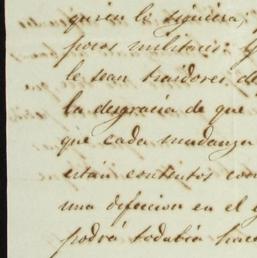 quien le siguiera;
pocos militares y
le sean traidores de
la desgracia de que
que cada mudanza
están contentos con
una defeccion en el
podrá todabia hace